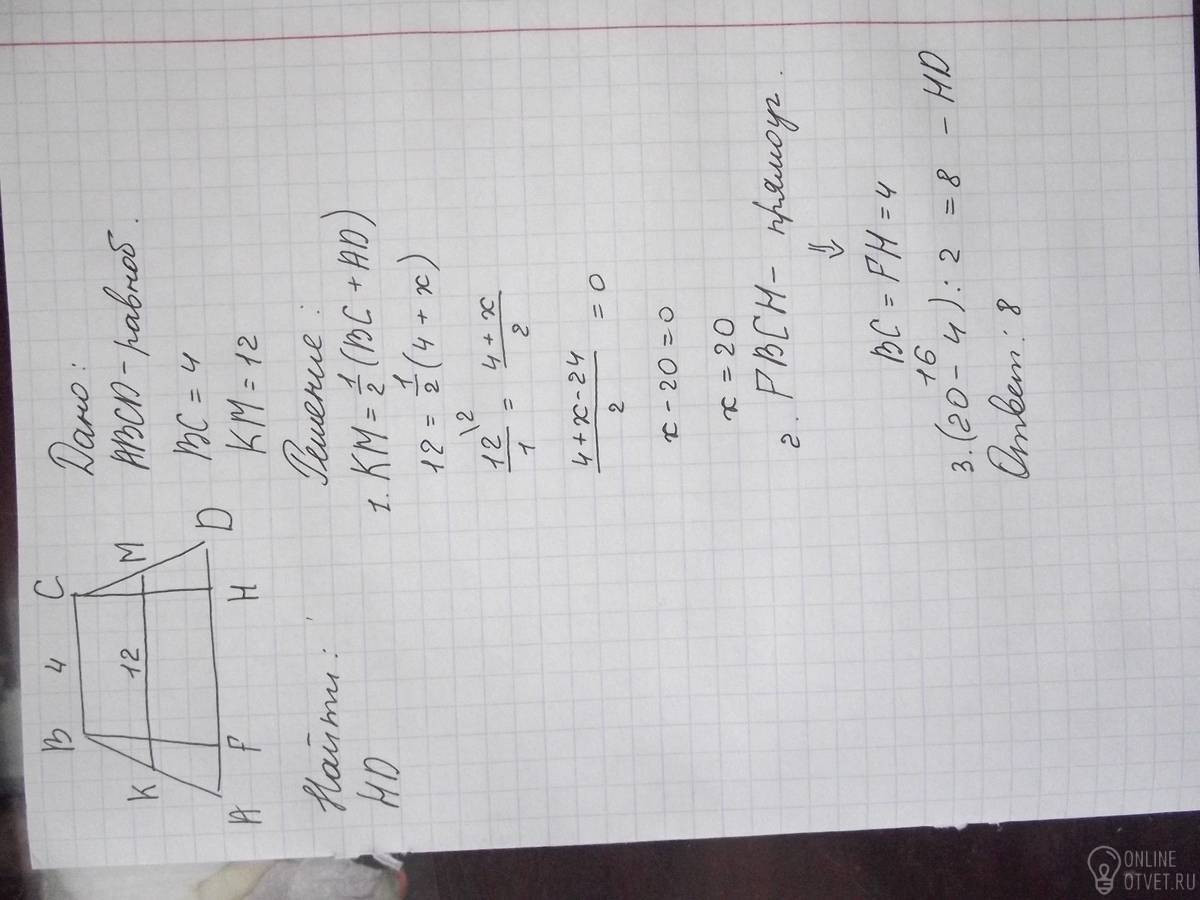 B 4 C
K 12 M
A P H D
Дано:
ABCD - равноб.
BC = 4
KM = 12
Найти:
HD
Решение:
1. KM = 1/2 (BC + AD)
12 = 1/2 (4 + x)
12\2 / 1 = 4 + x / 2
4 + x - 24 / 2 = 0
x - 20 = 0
x = 20
2. PBCH - прямоуг.
⇓
BC = PH = 4
16
3. (20 - 4) : 2 = 8 - HD
Ответ: 8
ONLINE
OTVET.RU